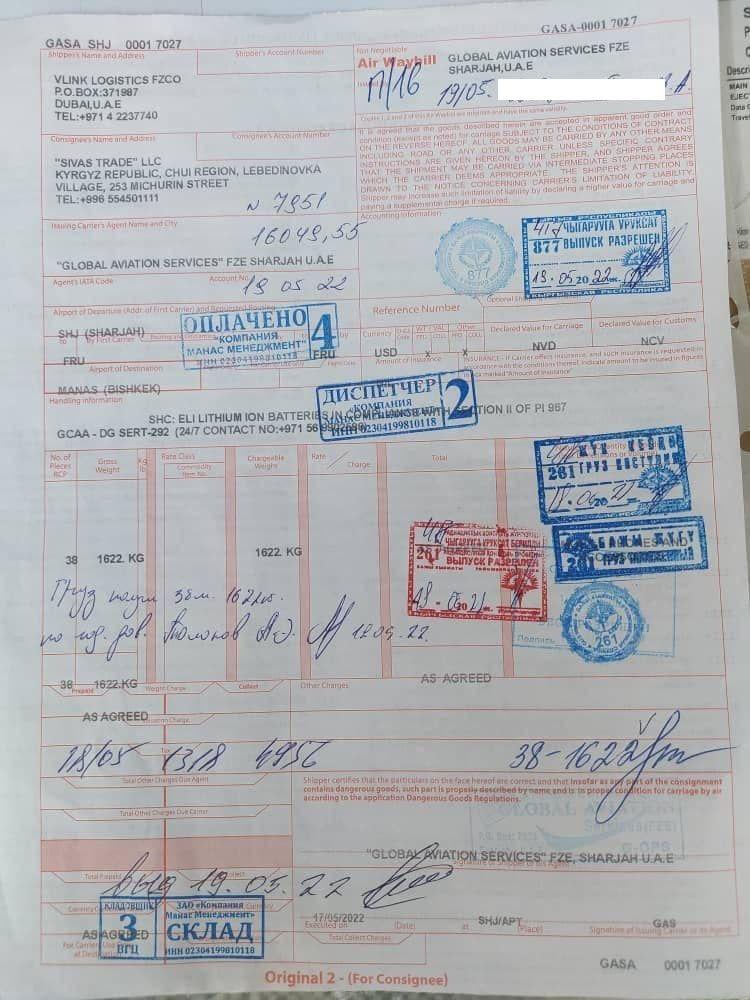 GASA-0001 7027
GASA SHJ 0001 7027
Shipper's Name and Address
Shipper's Account Number
VLINK LOGISTICS FZCO
P.O.BOX:371987
DUBAI,U.A.E
TEL:+971 4 2237740
Not Negotiable
Air Waybill
Issued by
GLOBAL AVIATION SERVICES FZE
SHARJAH,U.A.E
П/1В 19/05.
Copies 1, 2 and 3 of this Air Waybill are originals and have the same validity.
Consignee's Name and Address
Consignee's Account Number
"SIVAS TRADE" LLC
KYRGYZ REPUBLIC, CHUI REGION, LEBEDINOVKA
VILLAGE, 253 MICHURIN STREET
TEL:+996 554501111
N 7951
It is agreed that the goods described herein are accepted in apparent good order and
condition (except as noted) for carriage SUBJECT TO THE CONDITIONS OF CONTRACT
ON THE REVERSE HEREOF. ALL GOODS MAY BE CARRIED BY ANY OTHER MEANS
INCLUDING ROAD OR ANY OTHER CARRIER UNLESS SPECIFIC CONTRARY
INSTRUCTIONS ARE GIVEN HEREON BY THE SHIPPER, AND SHIPPER AGREES
THAT THE SHIPMENT MAY BE CARRIED VIA INTERMEDIATE STOPPING PLACES
WHICH THE CARRIER DEEMS APPROPRIATE. THE SHIPPER'S ATTENTION IS
DRAWN TO THE NOTICE CONCERNING CARRIER'S LIMITATION OF LIABILITY.
Shipper may increase such limitation of liability by declaring a higher value for carriage and
paying a supplemental charge if required.
Issuing Carrier's Agent Name and City
16049,55
"GLOBAL AVIATION SERVICES" FZE SHARJAH U.A.E
Accounting Information
877
КЫРГЫЗ РЕСПУБЛИКАСЫ
ЧЫГАРУУГА УРУКСАТ
877 ВЫПУСК РАЗРЕШЕН
19.05 2022
КЫРГЫЗСКАЯ РЕСПУБЛИКА
Agent's IATA Code
Account No.
19 05 22
Airport of Departure (Addr. of First Carrier) and Requested Routing
SHJ (SHARJAH)
Reference Number
ОПЛАЧЕНО
"КОМПАНИЯ
МАНАС МЕНЕДЖМЕНТ"
ИНН 02304199810118
4
to
By First Carrier
FRU
FRU
Currency
USD
x
x
Declared Value for Carriage
NVD
Declared Value for Customs
NCV
Airport of Destination
MANAS (BISHKEK)
Amount of Insurance
INSURANCE - If Carrier offers insurance, and such insurance is requested in
accordance with the conditions thereof, indicate amount to be insured in figures
in box marked "Amount of Insurance"
ДИСПЕТЧЕР
"КОМПАНИЯ
МАНАС МЕНЕДЖМЕНТ"
ИНН 02304199810118
2
Handling Information
SHC: ELI LITHIUM ION BATTERIES IN COMPLIANCE WITH SECTION II OF PI 967
GCAA - DG SERT-292 (24/7 CONTACT NO:+971 56
No. of
Pieces
RCP
Gross
Weight
kg
lb
Rate Class
Commodity
Item No.
Chargeable
Weight
Rate
Charge
Total
261 ГРУЗ ПОСТУПИЛ
38
1622. KG
1622. KG
ЧЫГАРУУГА УРУКСАТ БЕРИЛДИ
261
ВЫПУСК РАЗРЕШЕН
КЫРГЫЗСКАЯ РЕСПУБЛИКА
261
Подпись
261
Груз получ 38м. 1622кг.
по ид. дов.
38
1622.KG
AS AGREED
Prepaid
Weight Charge
Collect
Other Charges
AS AGREED
Valuation Charge
18/05 1318 6956
38-1622
Tax
Total Other Charges Due Agent
Total Other Charges Due Carrier
Shipper certifies that the particulars on the face hereof are correct and that insofar as any part of the consignment
contains dangerous goods, such part is properly described by name and is in proper condition for carriage by air
according to the application Dangerous Goods Regulations.
GLOBAL AVIATION
SERVICES(FZE)
G-OPS
"GLOBAL AVIATION SERVICES" FZE, SHARJAH U.A.E
Signature of Shipper or his Agent
Total Prepaid
Total Collect
выд 19.05.22
AS AGREED
3
ВГЦ
ЗАО «Компания
Манас Менеджмент»
СКЛАД
ИНН 02304199810118
17/05/2022
SHJ/APT
GAS
Executed on
(Date)
at
(Place)
Signature of Issuing Carrier or its Agent
For Carriers Use Only
at Destination
Total Collect Charges
GASA 0001 7027
Original 2 - (For Consignee)